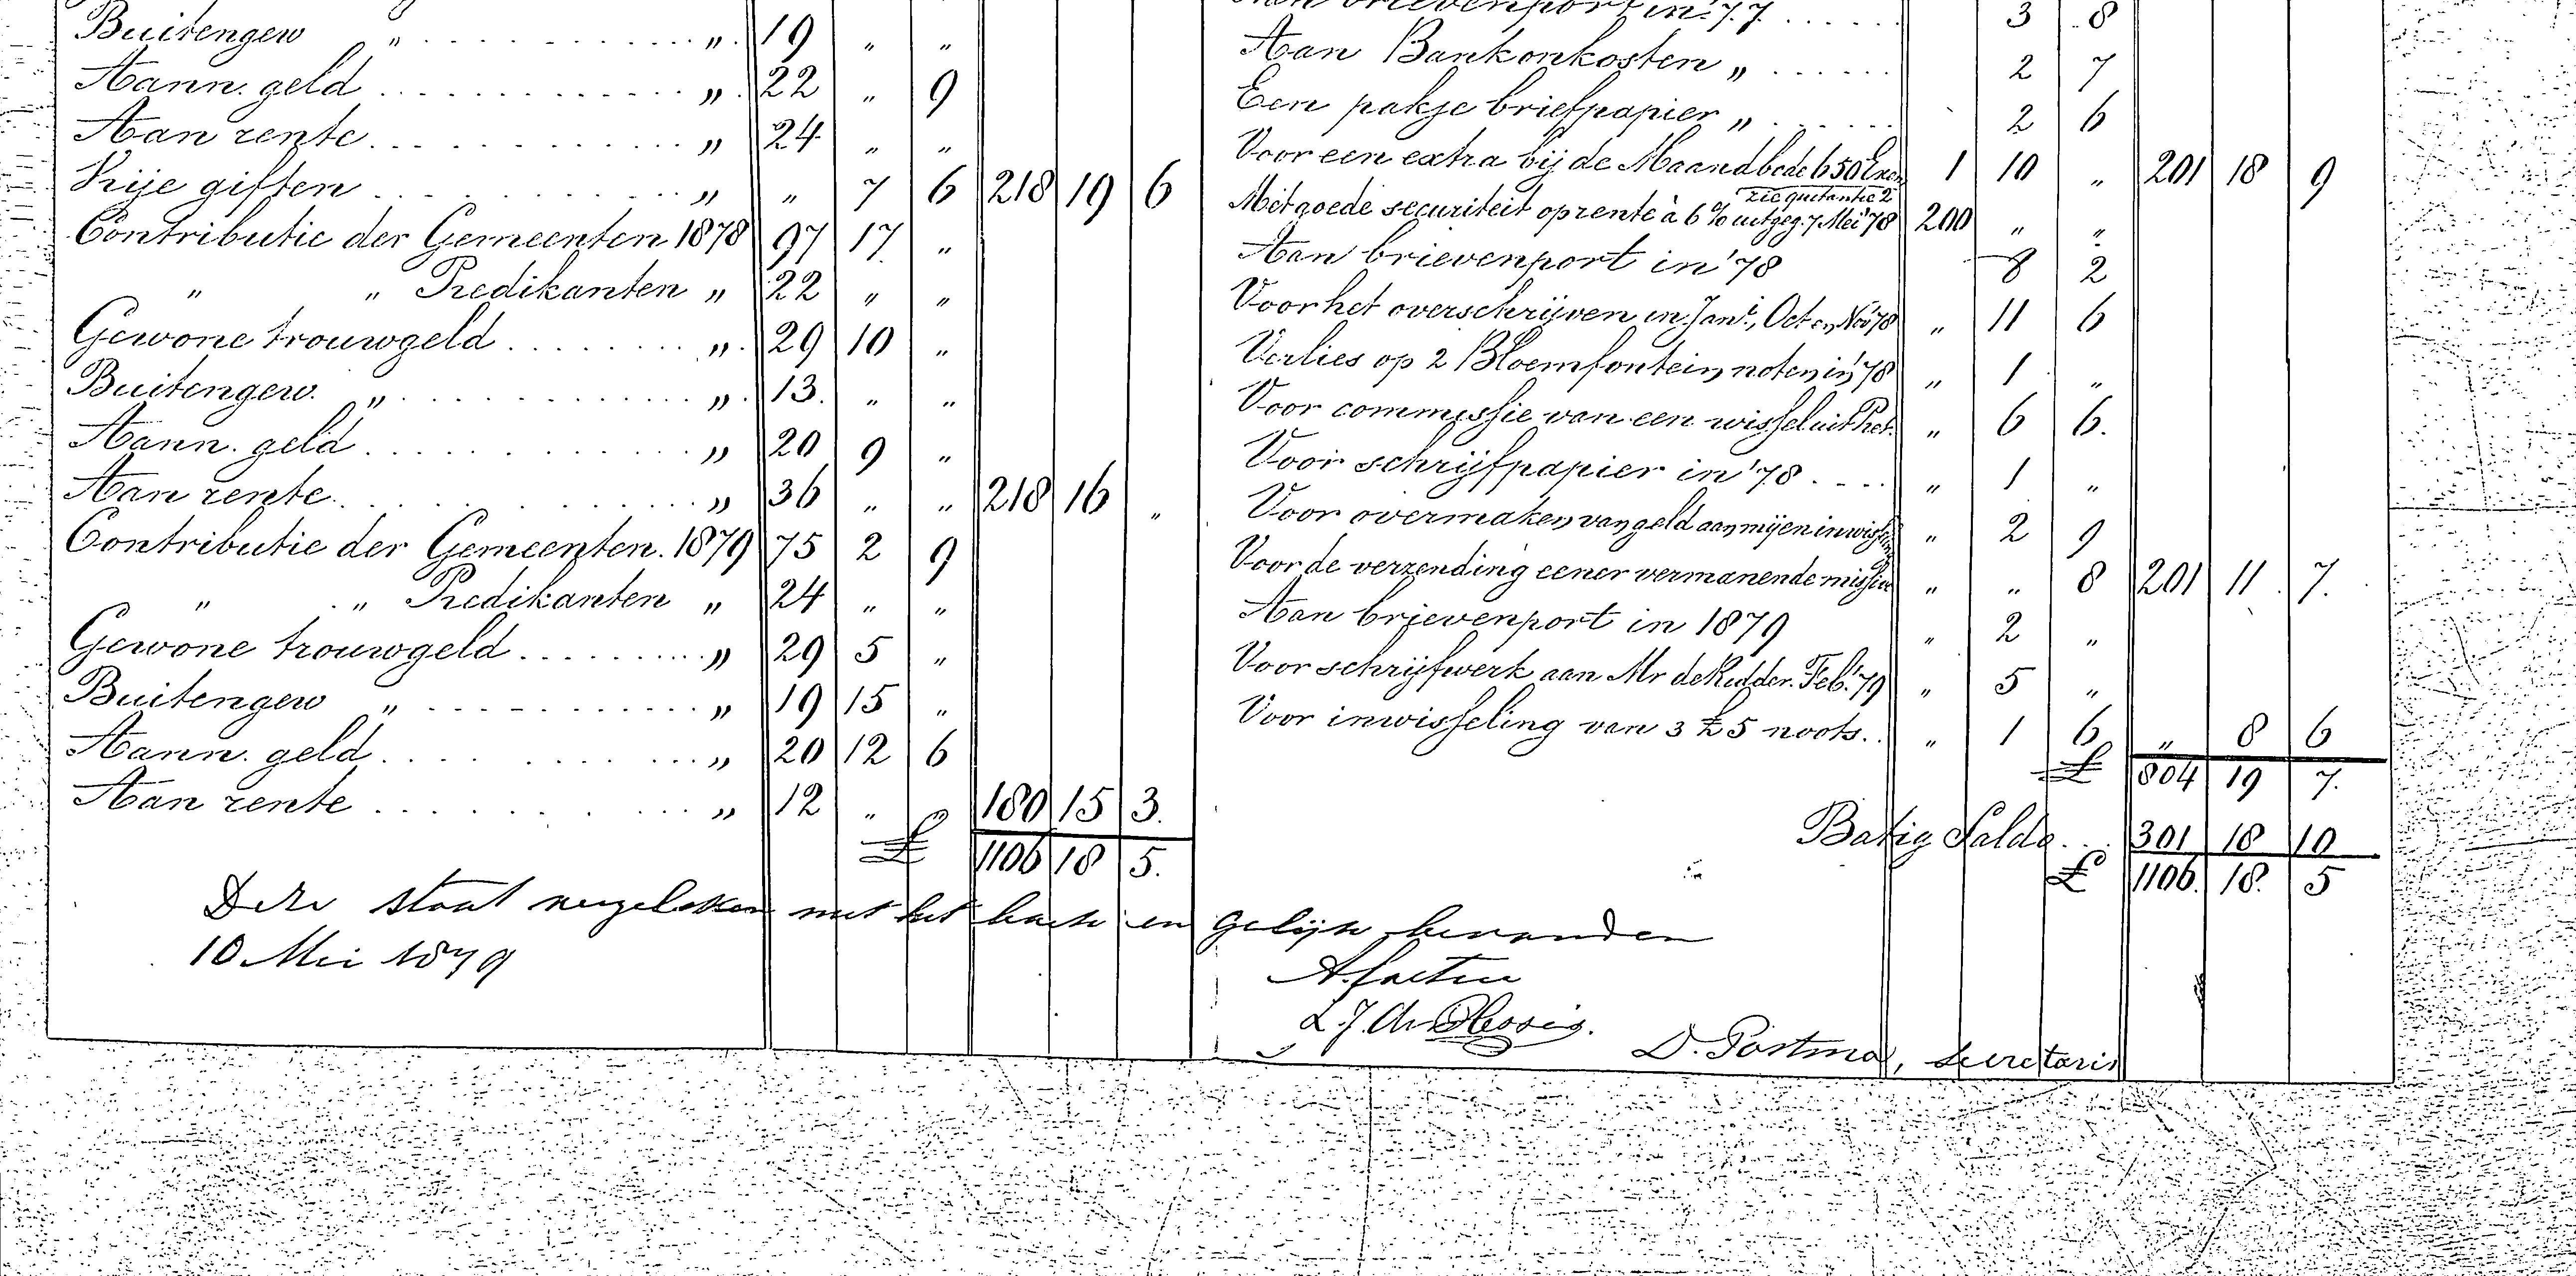 Buitengew " . . . . . . . . . . . " 19 " "
Aann. geld . . . . . . . . . . . " 22 " 9
Aan rente . . . . . . . . . . . " 24 " "
Vrije giften . . . . . . . . . . . " " 7 6 218 19 6
Contributie der Gemeenten 1878 97 17 "
" " Predikanten " 22 " "
Gewone trouwgeld . . . . . . . " 29 10 "
Buitengew. " . . . . . . . . . . . " 13. " "
Aann. geld . . . . . . . . . . . " 20 9 "
Aan rente . . . . . . . . . . . " 36 " " 218 16 "
Contributie der Gemeenten. 1879 75 2 9
" " Predikanten " 24 " "
Gewone trouwgeld . . . . . . . " 29 5 "
Buitengew " . . . . . . . . . . . " 19 15 "
Aann. geld . . . . . . . . . . . " 20 12 6
Aan rente . . . . . . . . . . . " 12 " " 180 15 3.
£ 1106 18 5.
Aan brievenport in '77 . . . . . . 3 8
Aan Bankonkosten " . . . . . . 2 7
Een pakje briefpapier " . . . . . . 2 6
Voor een extra bij de Maandbode 650 Exen 1 10 " 201 18 9
zie quitantie 2
Met goede securiteit op rente à 6 % uitgeg. 7 Mei '78 200 " "
Aan brievenport in '78 8 2
Voor het overschrijven in Jan., Oct en Nov '78 " 11 6
Verlies op 2 Bloemfontein noten in '78 " 1 "
Voor commissie van een wissel uit Pket. " 6 6.
Voor schrijfpapier in '78 . . . . " 1 "
Voor overmaken van geld aan mij en inwisseling " 2 9
Voor de verzending eener vermanende missive " " 8 201 11 7.
Aan brievenport in 1879 " 2 "
Voor schrijfwerk aan Mr de Ridder. Feb. '79 " 5 "
Voor inwisseling van 3 £5 noots . . " 1 6 " 8 6
£ 804 19 7.
Batig Saldo . . 301 18 10
£ 1106. 18. 5
Deze staat vergeleken met het boek en gelijk bevonden
10 Mei 1879
L. J. du Plessis.
D. Postma, Secretaris